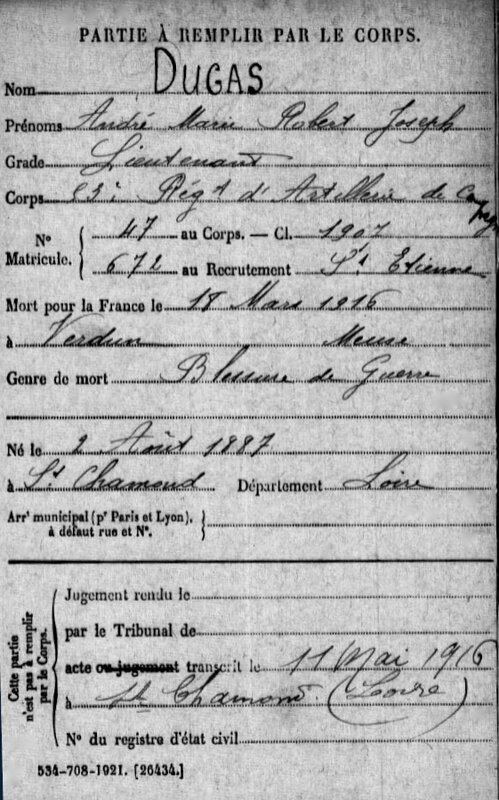 PARTIE À REMPLIR PAR LE CORPS.
Nom DUGAS
Prénoms André Marie Robert Joseph
Grade Lieutenant
Corps 53e Régt d'Artillerie de Campagne
N° Matricule. { 47 au Corps. — Cl. 1907
672 au Recrutement St Etienne
Mort pour la France le 18 Mars 1916
à Verdun Meuse
Genre de mort Blessure de Guerre
Né le 2 Août 1887
à St Chamond Département Loire
Arrt municipal (pr Paris et Lyon), à défaut rue et N°. }
Cette partie n'est pas à remplir par le Corps.
Jugement rendu le
par le Tribunal de
acte ou jugement transcrit le 11 Mai 1916
à St Chamond (Loire)
N° du registre d'état civil
534-708-1921. [26434.]